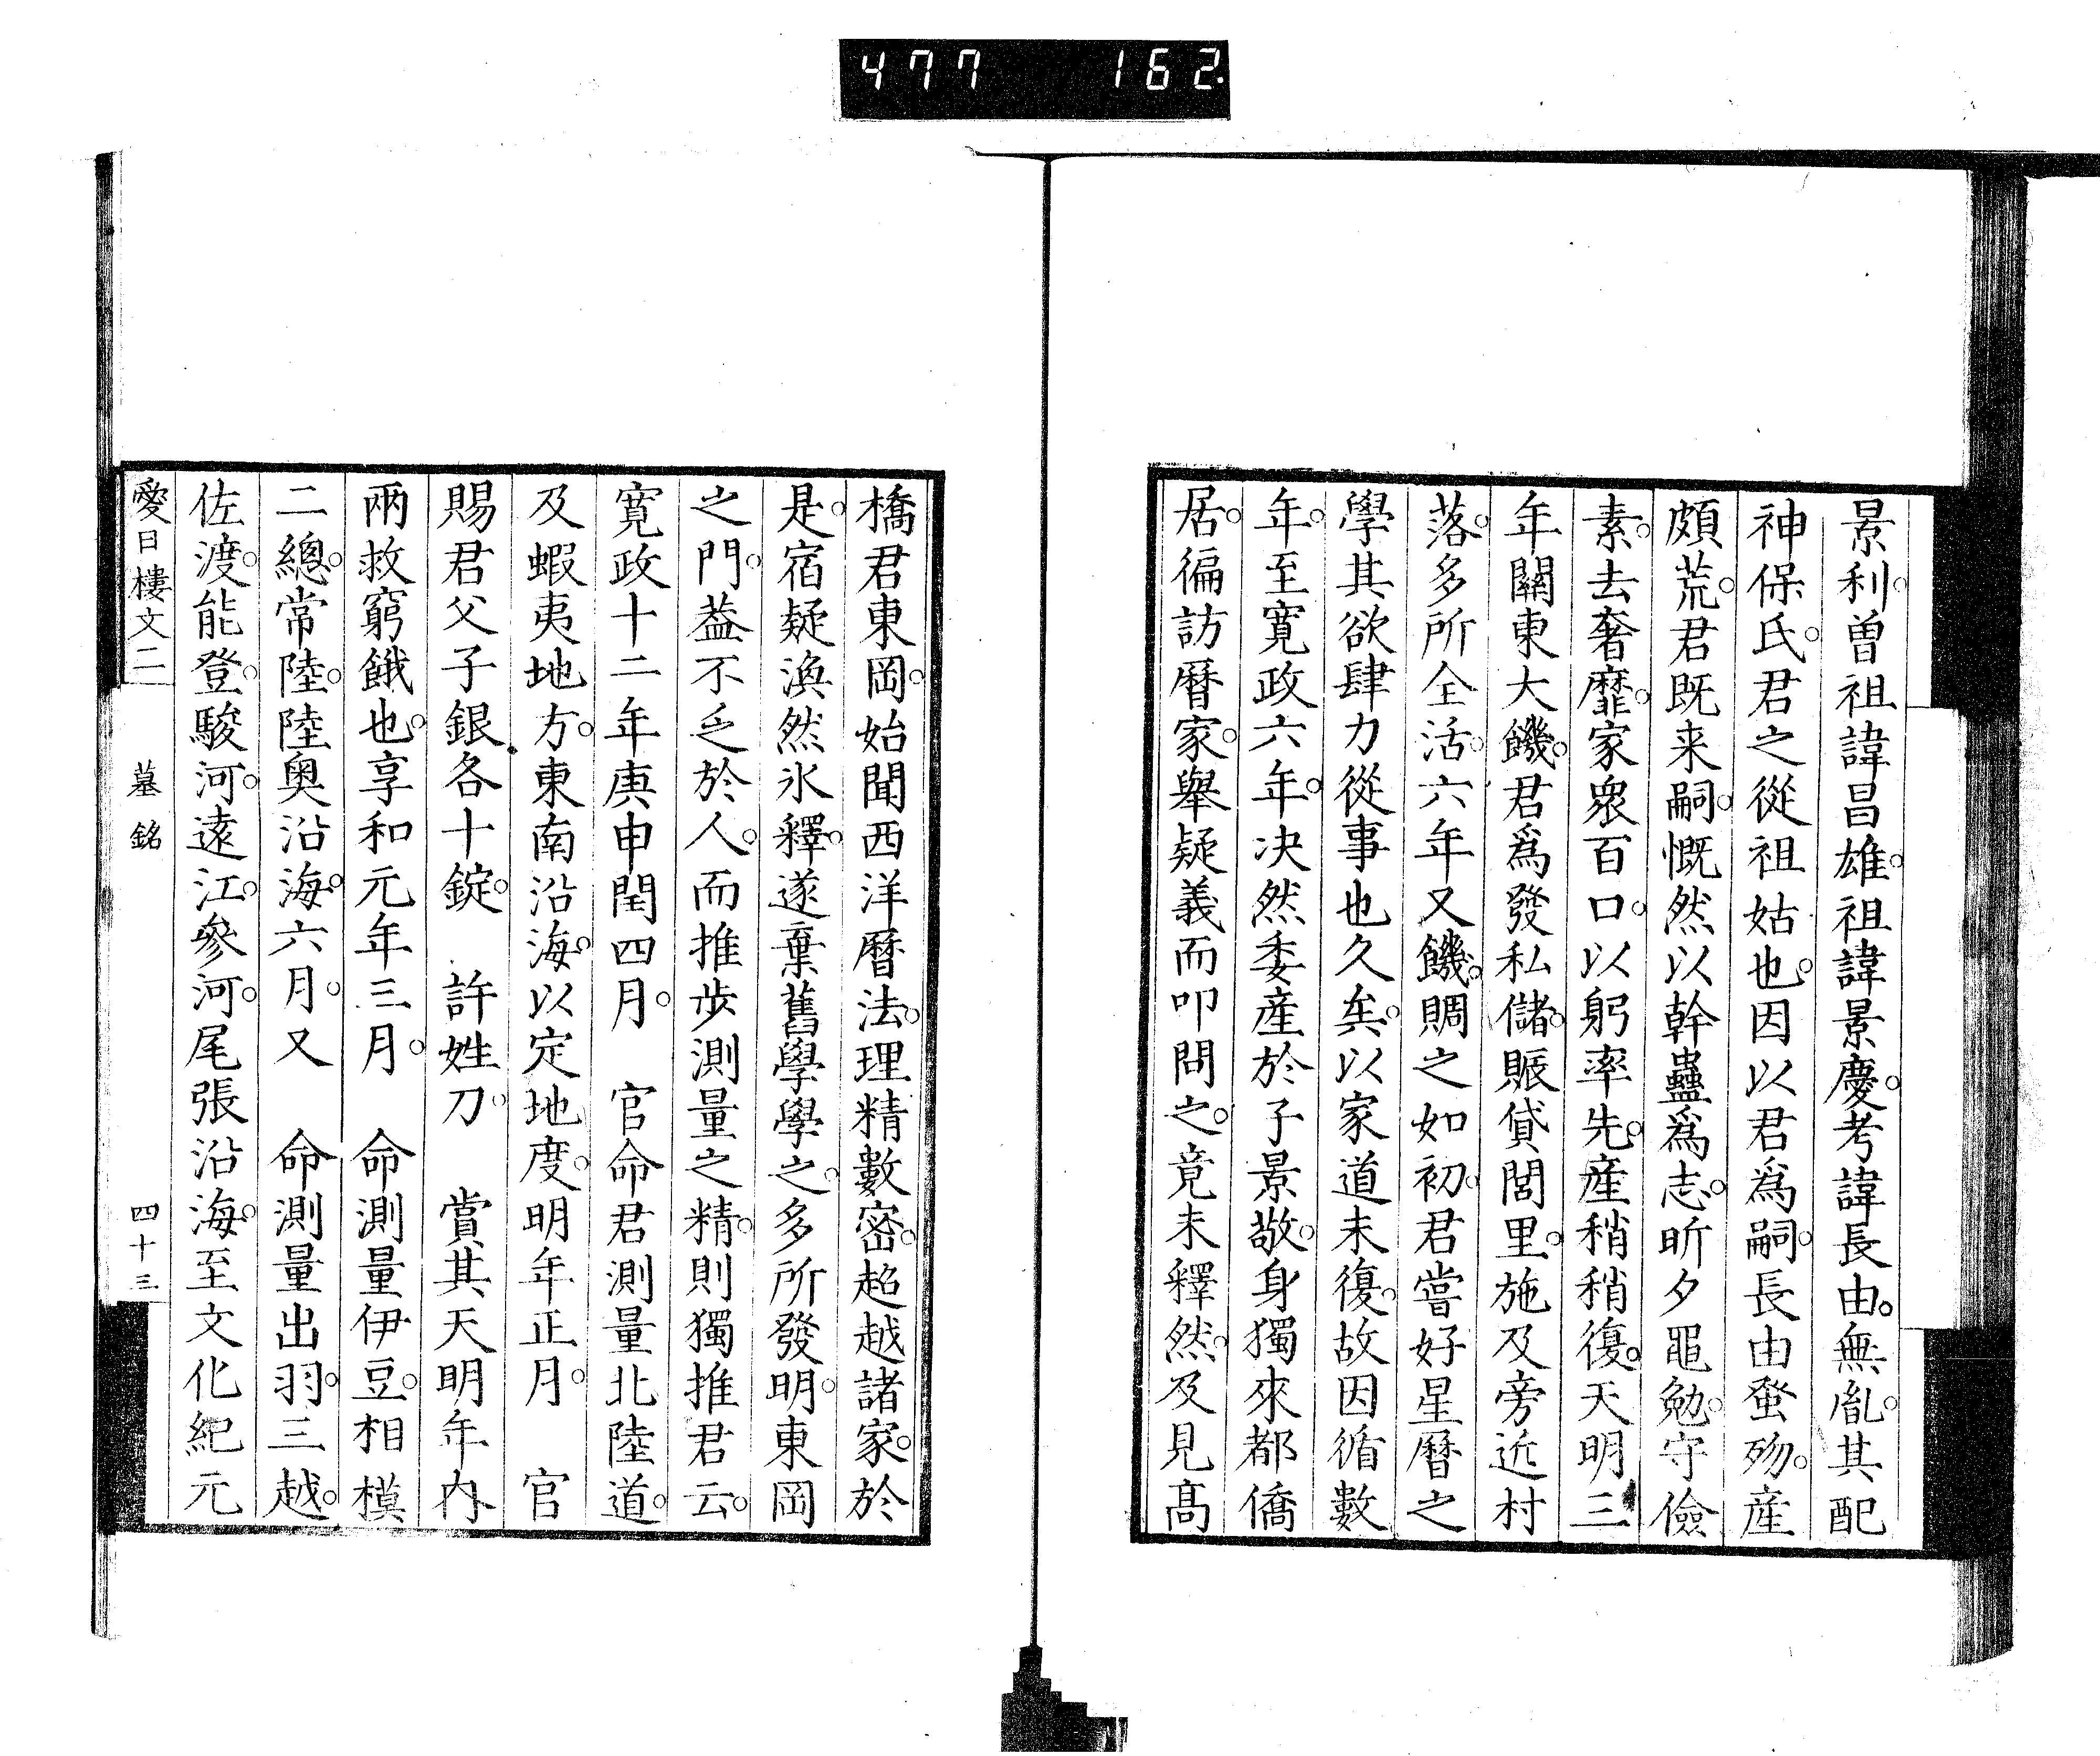 477 162
景利。曽祖諱昌雄。祖諱景慶。考諱長由。無胤。其配
神保氏。君之從祖姑也。因以君爲嗣。長由蚤歿。産
頗荒。君既来嗣。慨然以幹蠱爲志。昕夕黽勉。守儉
素。去奢靡。家衆百口。以躬率先。産稍稍復。天明三
年關東大饑。君爲發私儲。賑貸閭里。施及旁近村
落。多所全活。六年又饑。賙之如初。君嘗好星曆之
學。其欲肆力從事也久矣。以家道未復。故因循數
年。至寛政六年。决然委産於子景敬。身獨來都僑
居。徧訪曆家。舉疑義而叩問之。竟未釋然。及見髙
橋君東岡。始聞西洋曆法。理精數密。超越諸家。於
是。宿疑渙然氷釋。遂棄舊學學之。多所發明。東岡
之門。葢不乏於人。而推歩測量之精。則獨推君云。
寛政十二年庚申閏四月。官命君測量北陸道。
及蝦夷地方。東南沿海。以定地度。明年正月。官
賜君父子銀各十錠。許姓刀。賞其天明年内
兩救窮餓也。享和元年三月。命測量伊豆。相模
二總。常陸。陸奥沿海。六月。又命測量出羽。三越。
佐渡。能登。駿河。遠江。參河。尾張沿海。至文化紀元
愛日樓文二 墓銘 四十三